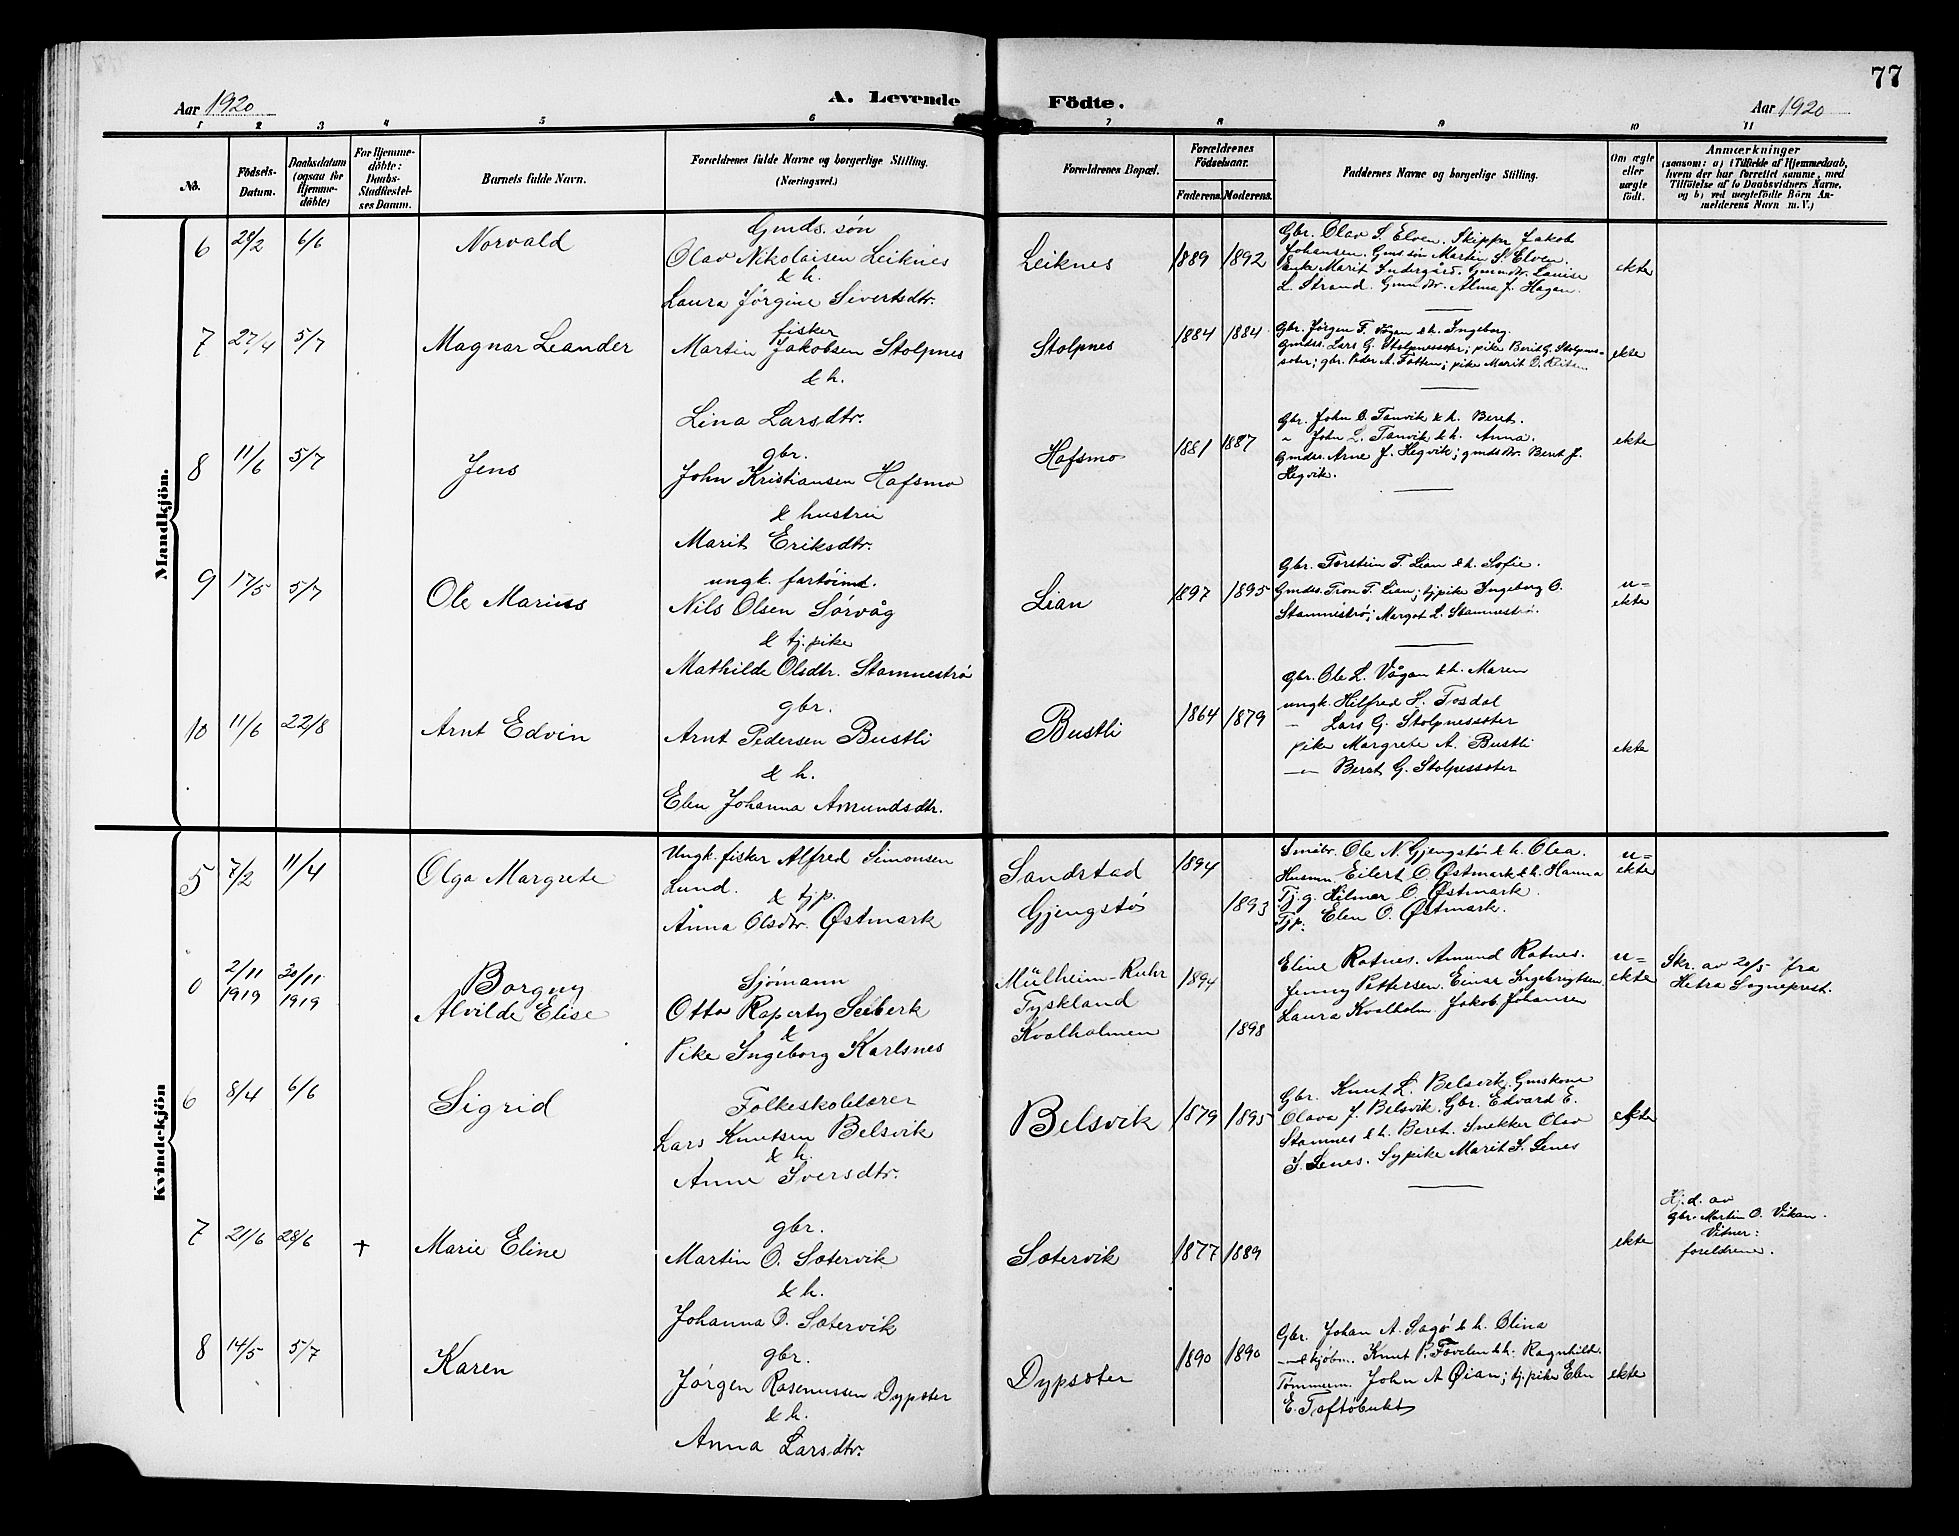 77
Aar 1920
A. Levende Födte.
Aar 1920
1 2 3 4 5 6 7 8 9 10 11
No.
Födsels-
Datum.
Daabsdatum
(ogsaa for
Hjemme-
döbte)
For Hjemme-
döbte:
Daabs-
Stadfæstel-
ses Datum.
Barnets fulde Navn.
Forældrenes fulde Navne og borgerlige Stilling.
(Næringsvei.)
Forældrenes Bopæl.
Forældrenes
Födselsaar.
Faderens. Moderens.
Faddernes Navne og borgerlige Stilling.
Om ægte
eller
uægte
födt.
Anmærkninger
(saasom: a) i Tilfælde af Hjemmedaab,
hvem der har forrettet samme, med
Tilföielse af to Daabsvidners Navne,
og b) ved uægtefödte Börn An-
melderens Navn m. V.)
Mandkjön.
6 29/2 6/6 Norvald
Gmds. søn
Olav Nikolaisen Leiknes
& h.
Laura Jørgine Sivertsdtr.
Leiknes 1889 1892
Gbr. Olav S. Elven. Skipper Jakob
Johansen. Gmssøn Martin S. Elven.
Enke Marit Indergård. Gmmdtr. Louise
L. Strand. Gmmdtr. Alma J. Hagan.
ekte
7 27/4 5/7 Magnar Leander
fisker
Martin Jakobsen Stolpnes
& h.
Lina Larsdtr.
Stolpnes 1884 1884
Gbr. Jørgen F. Vågan & h. Ingeborg.
Gmdss. Lars G. Stolpnessæter; pike Berit G. Stolpnes-
sæter; gbr. Peder A. Tøtten; pike Marit O. Reitan.
ekte
8 11/6 5/7 Jens
gbr.
John Kristiansen Hafsmo
& hustru
Marit Eriksdtr.
Hafsmo 1881 1887
Gbr. John O. Tanvik & h. Beret.
" John L. Tanvik & h. Anna.
Gmdss. Arne J. Hegvik; gmdsdtr. Beret J.
Hegvik.
ekte
9 17/5 5/7 Ole Marius
ungk. fartøimd.
Nils Olsen Sørvåg
& tj. pike
Mathilde Olsdtr. Stamnestrø
Lian 1897 1895
Gbr. Torstein T. Lian & h. Sofie.
Gmdss. Tron T. Lian; tj.pike Ingeborg O.
Stamnestrø; Margot L. Stamnestrø.
u=
ekte
10 11/6 22/8 Arnt Edvin
gbr.
Arnt Pedersen Bustli
& h.
Elen Johanna Amundsdtr.
Bustli 1864 1879
Gbr. Ole L. Vågan & h. Maren
ungk. Hilfred S. Fosdal
— Lars G. Stolpnessæter
pike Margrete A. Bustli
—"— Beret G. Stolpessæter
ekte
Kvindekjön
5 7/2 11/4 Olga Margrete
Ungk. fisker Alfred Simonsen
Lund.
& tjp.
Anna Olsdtr. Østmark
Sandstad 1894
Gjengstø 1893
Småbr. Ole N. Gjengstø & h. Olea.
Husmn. Eilert O Østmark & h. Hanna
Tj. g. Hilmar O Østmark.
Tjp. Elen O. Østmark.
u=
ekte
0 2/11 1919 30/11 1919
Borgny
Alvilde Elise
Sjømann
Otto Raperty Seiberk
&
Pike Ingeborg Karlsnes
Mülheim-Ruhr 1894
Tyskland
Kvalholmen 1898
Eline Rotnes. Amund Rotnes.
Jenny Pettersen. Einar Ingebrigtsen.
Laura Kvalholm. Jakob Johansen
u=
ekte
Skr. av 20/5 fra
Hitra Sogneprest.
6 8/4 6/6 Sigrid
Folkeskolelærer
Lars Knutsen Belsvik
& h.
Anne Iversdtr.
Belsvik 1879 1895
Gbr. Knut L. Belsvik. Gmskone
Olava J. Belsvik. Gbr. Edvard E.
Stamnes & h. Beret. Snekker Olav
I. Senes. Sypike Marit I. Senes
ekte
7 21/6 28/6 † Marie Eline
gbr.
Martin O. Sætervik
& h.
Johanna O. Sætervik
Sætervik 1877 1889
ekte
Hj. d. av
gbr. Martin O. Vikan.
Vitner:
foreldrene.
8 14/5 5/7 Karen
gbr.
Jørgen Rasmussen Dypsæter
& h.
Anna Larsdtr.
Dypsæter 1890 1890
Gbr. Johan A. Sagø & h. Olina
—" & kjøbm. Knut P. Føvelen & h. Ragnhild.
Tømmerm. John A Øian; tj. pike Elen
E. Toftøbukt
ekte